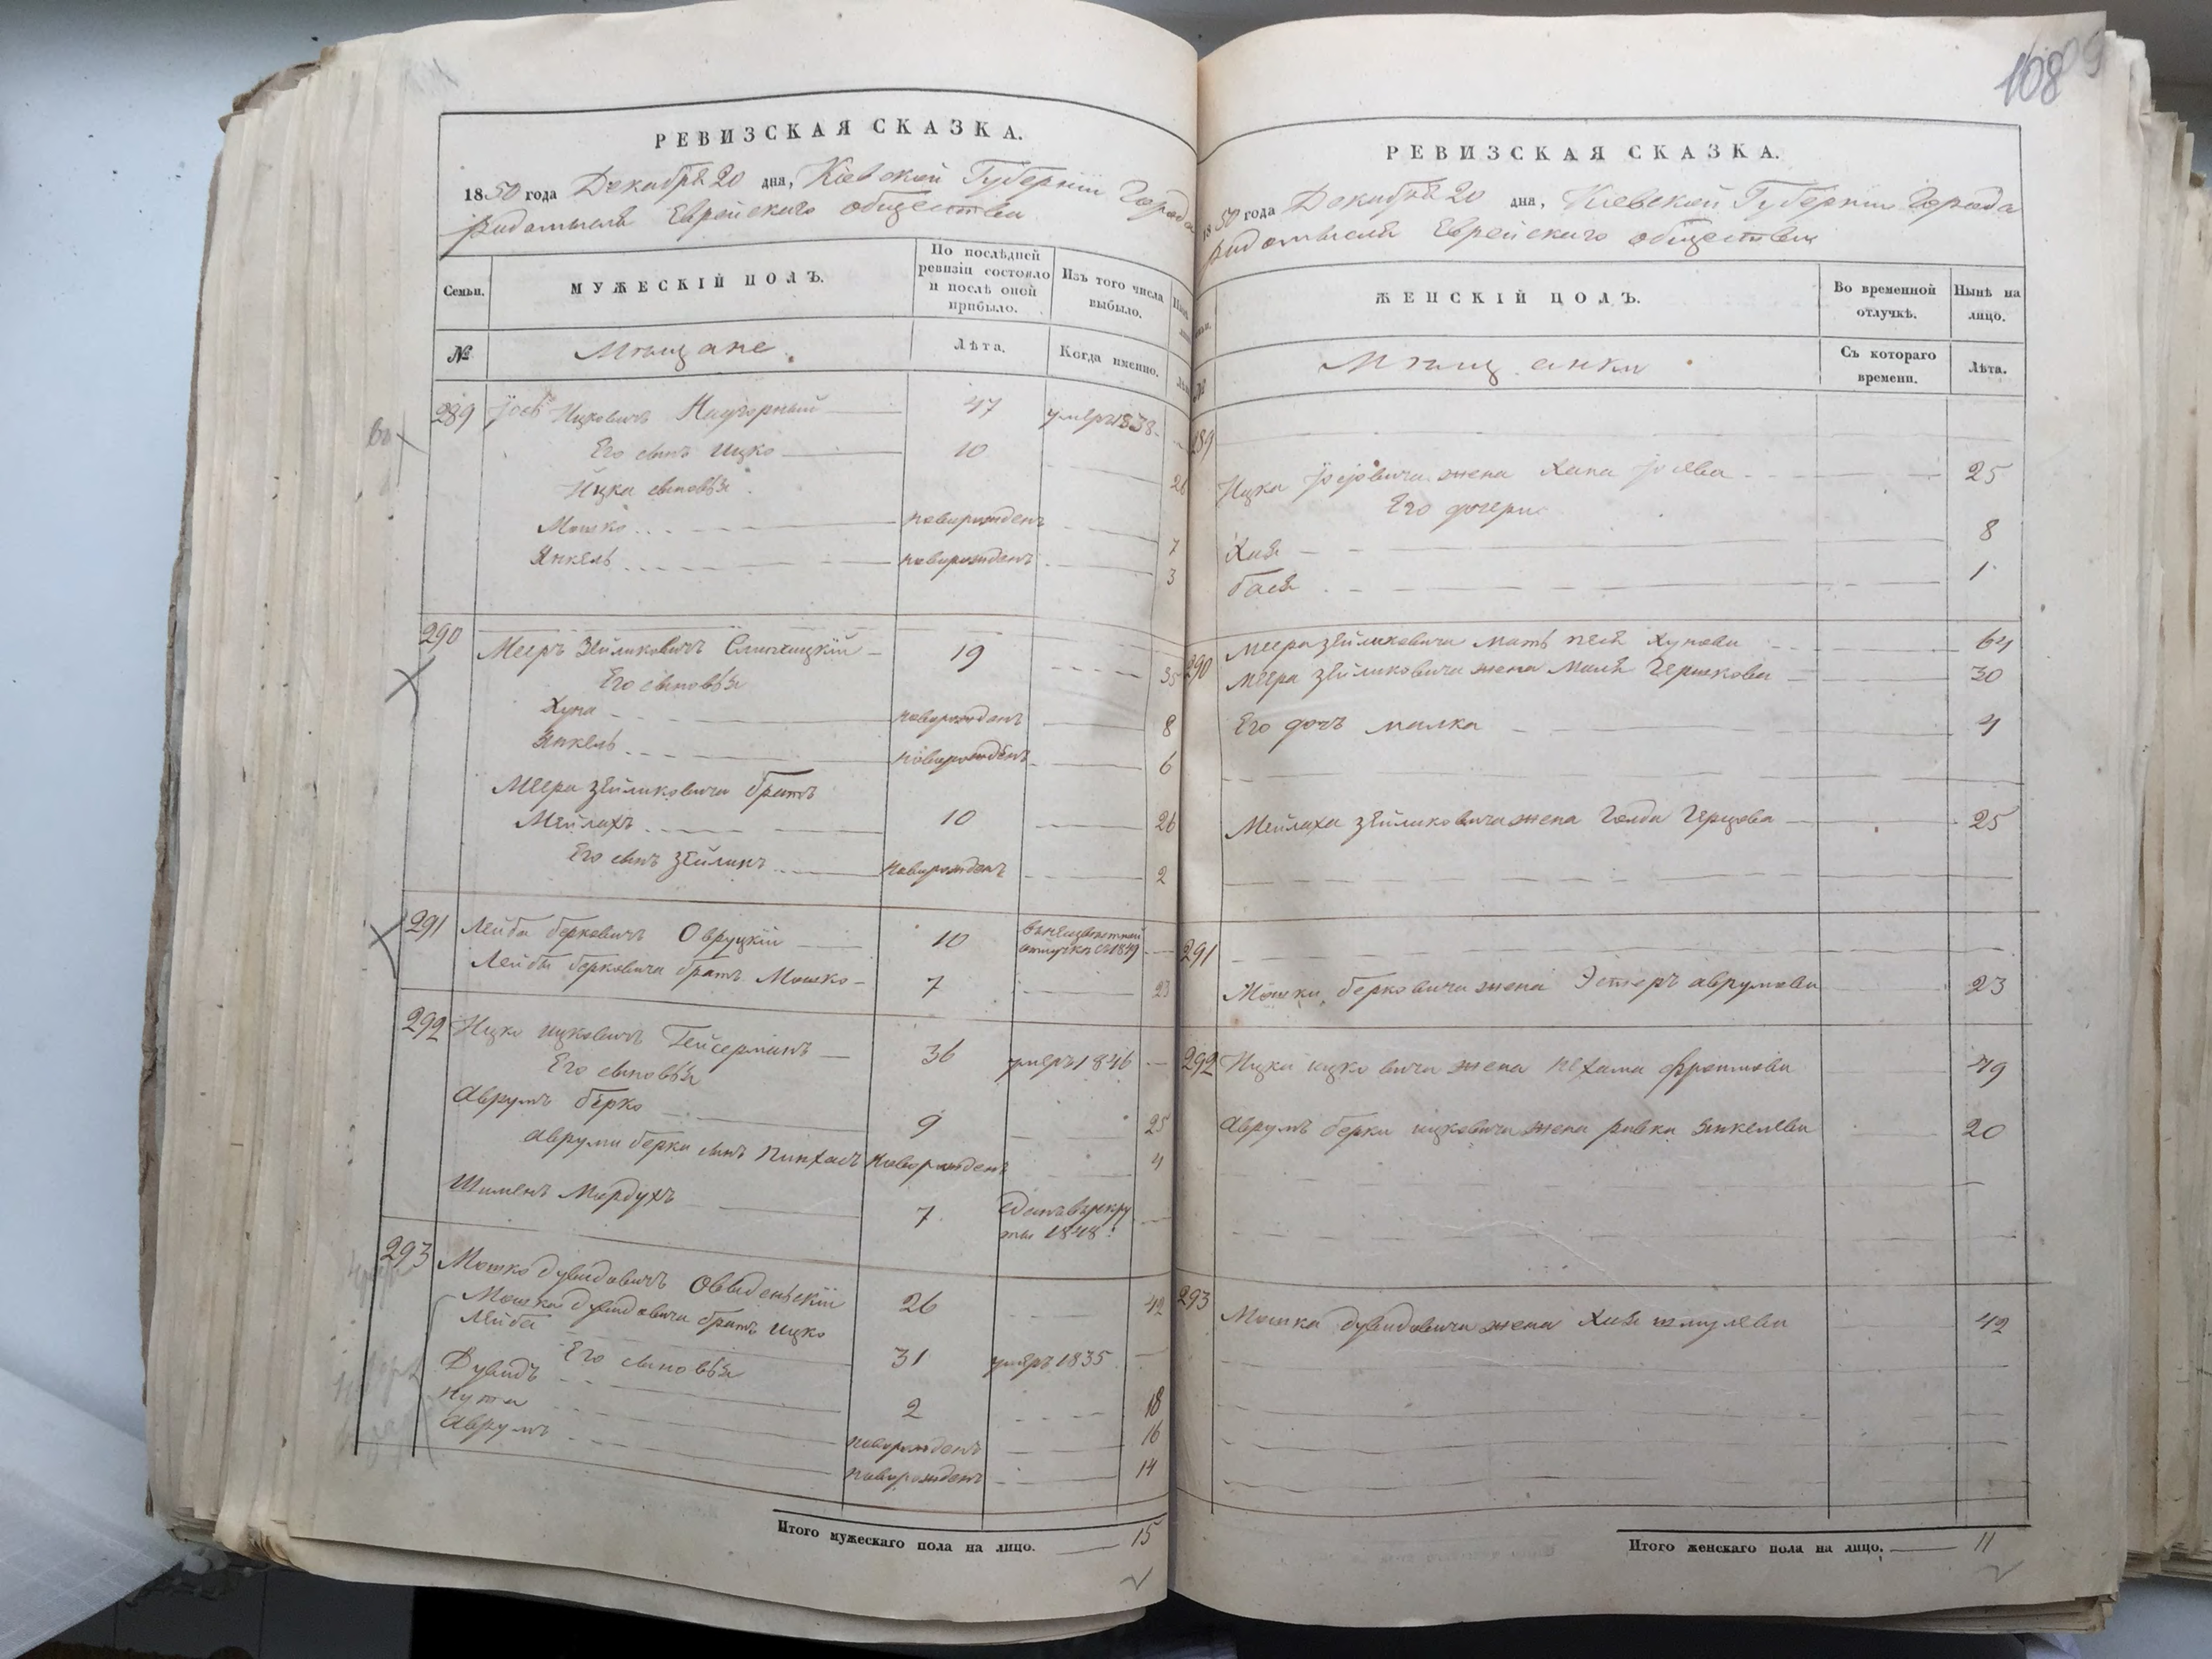 РЕВИЗСКАЯ СКАЗКА.
1850 года Декабря 20 дня, Кіевской Губерніи Города
Радомысля Еврейскаго общества
Семьи.
МУЖЕСКІЙ ПОЛЪ.
По послѣдней
ревизіи состояло
и послѣ оной
прибыло.
Изъ того числа
выбыло.
№
Мѣщане.
Лѣта.
Когда именно.
289 Іось Ицковичъ 47 умеръ 1838
Его сынъ Ицко 10 26
Ицка сыновья
Мошко новорожденъ 7
Янкель новорожденъ 3
290 Мееръ Зейликовичъ 19 35
Его сыновья
Хуна новорожденъ 8
Янкель новорожденъ 6
Меера Зейликовича братъ
Мейлахъ 10 26
Его сынъ Зейликъ новорожденъ 2
291 Лейба Берковичъ Овруцкій 10 въ неизвѣстной
отлучкѣ съ 1849
Лейбы Берковича братъ Мошко 7 23
292 Ицко Ицковичъ Гейсерманъ 36 умеръ 1846
Его сыновья
Аврумъ Берко 9 25
Аврума Берка сынъ Пинхасъ новорожденъ 4
Шименъ Мордухъ 7 Сданъ въ рекру
ты 1848
293 Мошко Дувидовичъ 26 42
Мошка Дувидовича братъ Ицко
Лейба 31 умеръ 1835
Его сыновья
Дувидъ 2 18
Нута новорожденъ 16
Аврумъ новорожденъ 14
Итого мужескаго пола на лицо. 15
108
РЕВИЗСКАЯ СКАЗКА.
1850 года Декабря 20 дня, Кіевской Губерніи Города
Радомысля Еврейскаго общества
ЖЕНСКІЙ ПОЛЪ.
Во временной
отлучкѣ.
Нынѣ на
лицо.
№
Мѣщанки
Съ котораго
времени.
Лѣта.
289
Ицка жена Хана 25
Его дочери
Хая 8
Бася 1
290 Меера Зейликовича мать Песя Хунова 64
Меера Зейликовича жена Маля Гершкова 30
Его дочь Малка 4
Мейлаха Зейликовича жена Голда Герцова 25
291
Мошки Берковича жена Эстеръ Аврумова 23
292 Ицки Ицковича жена Нехама Фроимова 49
Аврумъ Берки Ицковича жена Ривка Янкелева 20
293
Мошка Дувидовича жена Хая Шмулева 42
Итого женскаго пола на лицо. 11